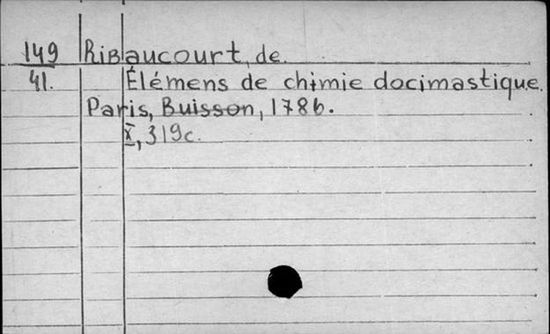 149 Ribaucourt, de.
41. Élémens de chimie docimastique.
Paris, Buisson, 1786.
X, 319c.